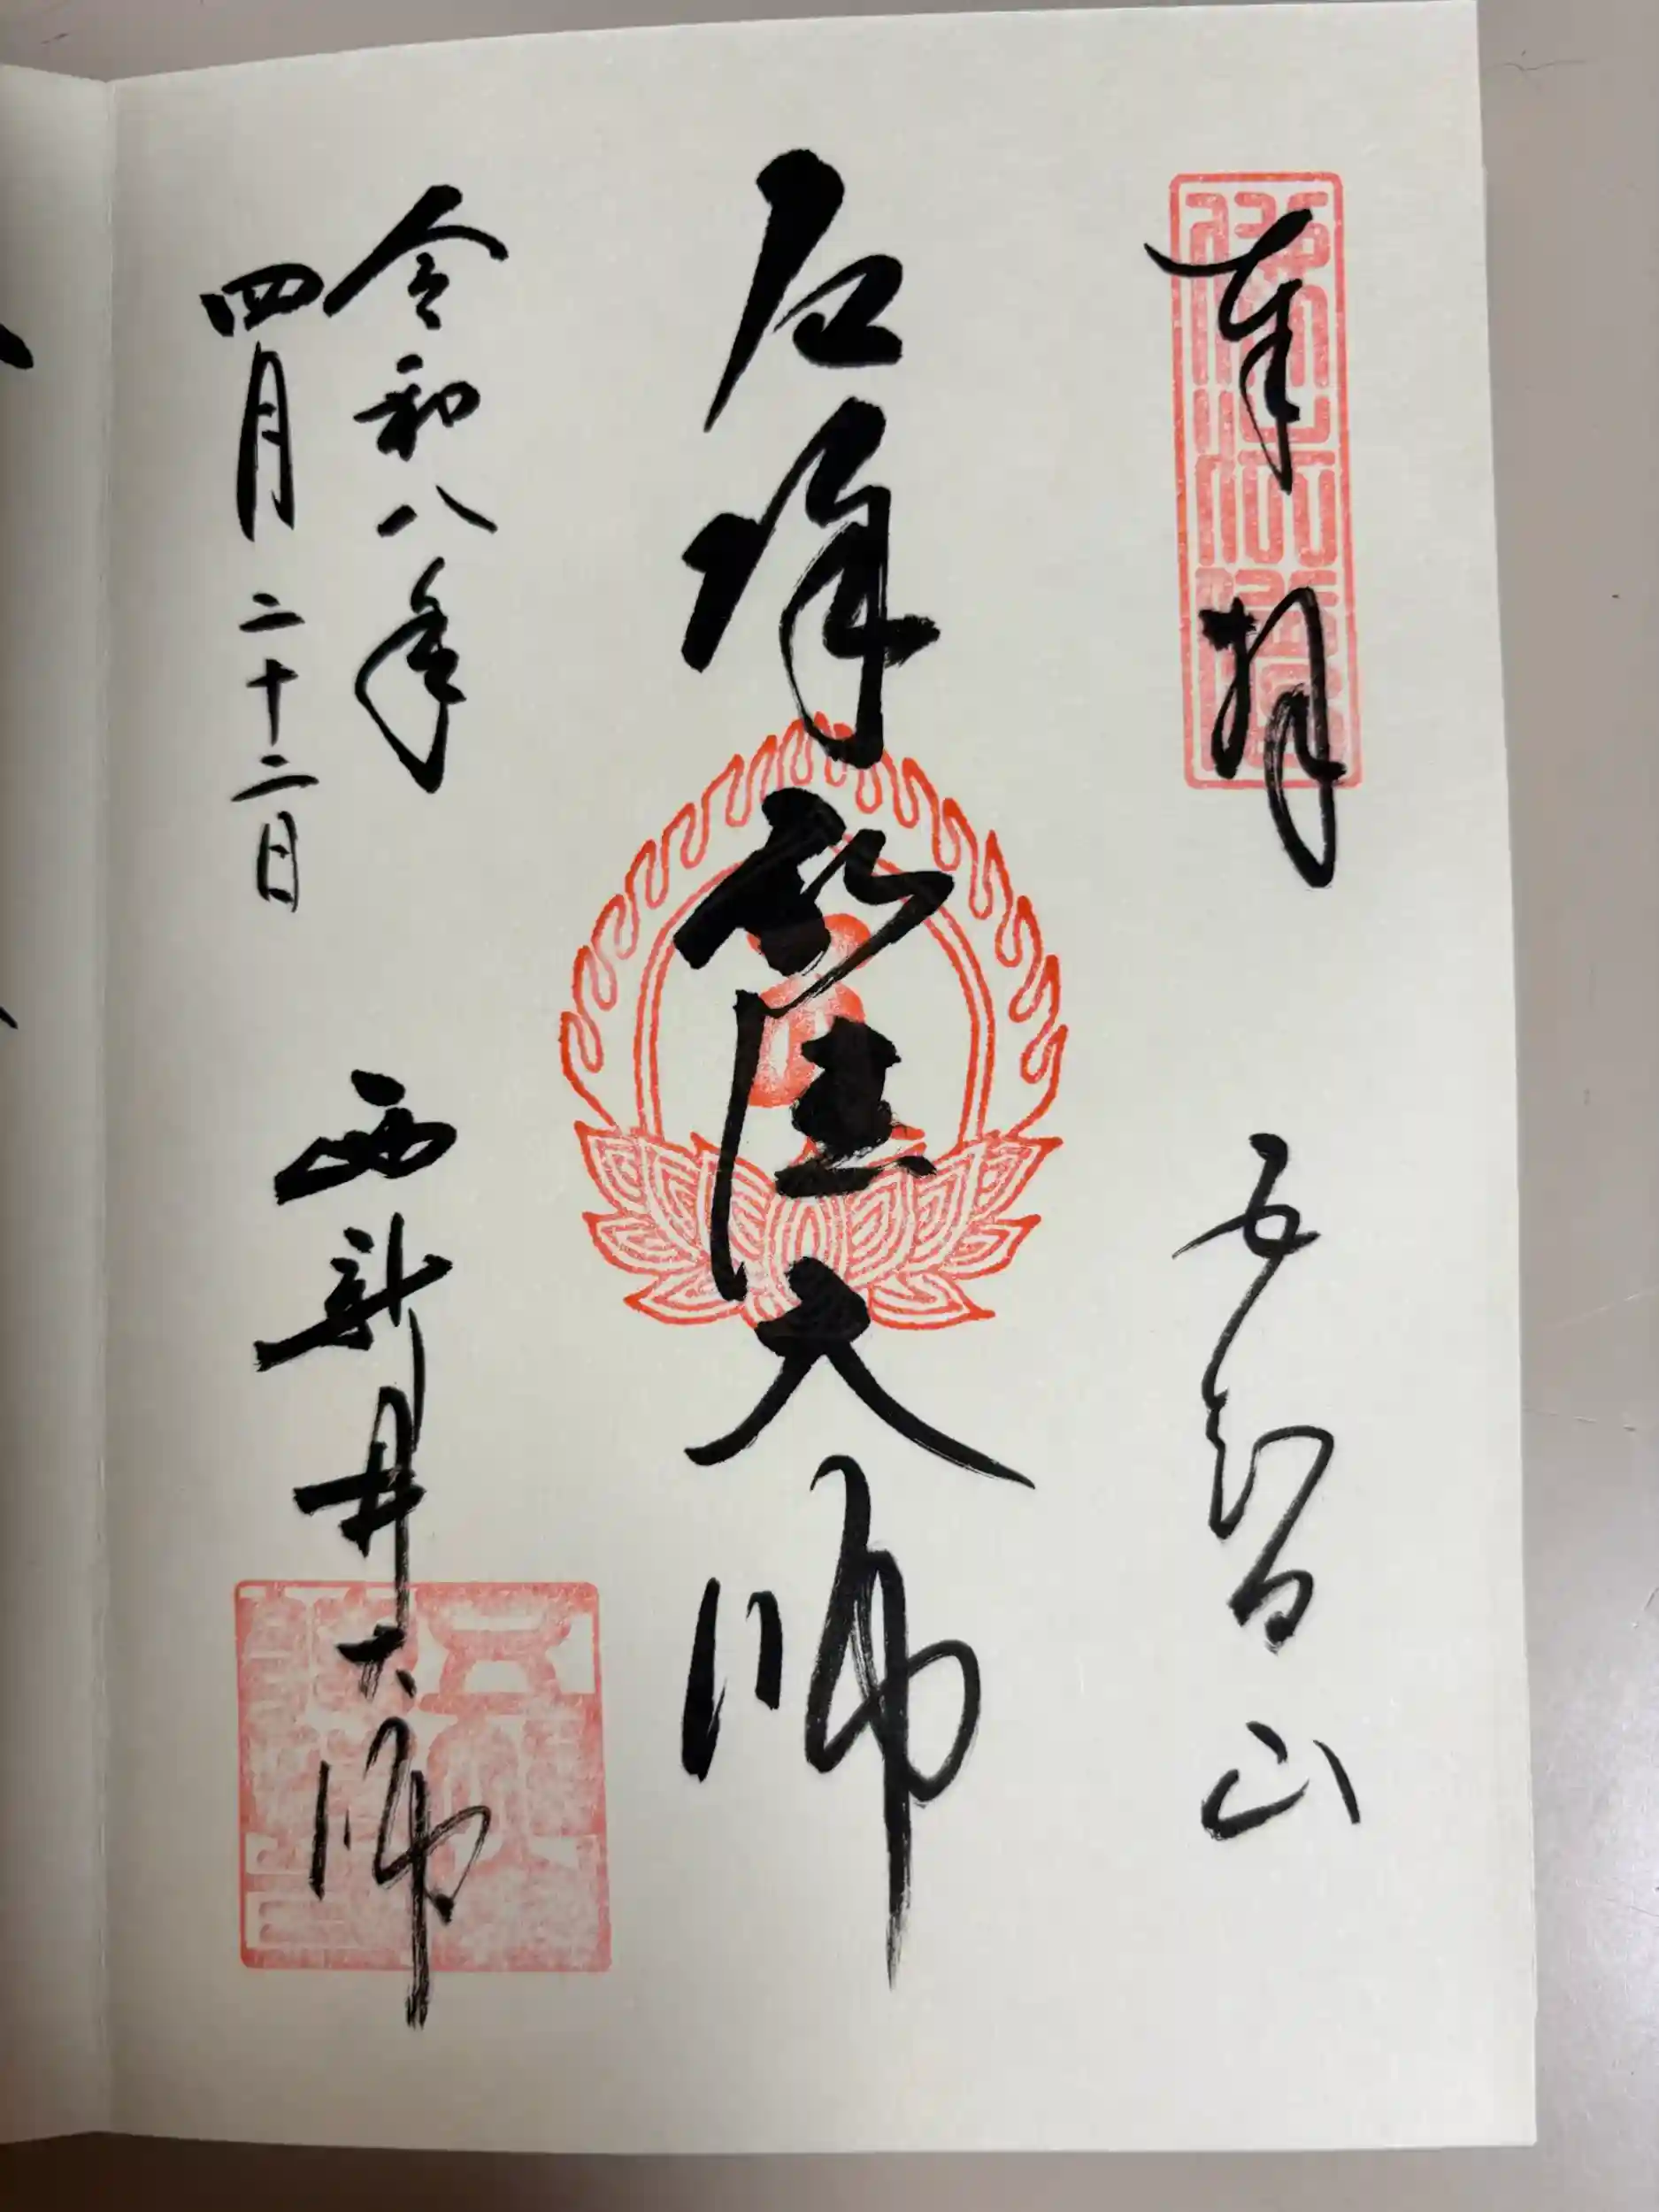 奉拝　五智山
厄除弘法大師
令和八年
四月二十二日
西新井大師